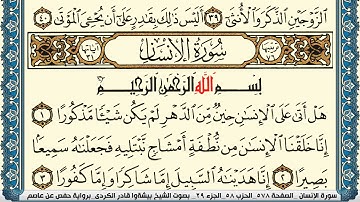 الزَّوْجَيْنِ الذَّكَرَ وَالْأُنثَىٰ ٣٩ أَلَيْسَ ذَٰلِكَ بِقَادِرٍ عَلَىٰ أَن يُحْيِيَ الْمَوْتَىٰ ٤٠
سُورَةُ الْإِنسَانِ
بِسْمِ اللَّهِ الرَّحْمَٰنِ الرَّحِيمِ
هَلْ أَتَىٰ عَلَى الْإِنسَانِ حِينٌ مِّنَ الدَّهْرِ لَمْ يَكُن شَيْئًا مَّذْكُورًا ١
إِنَّا خَلَقْنَا الْإِنسَانَ مِن نُّطْفَةٍ أَمْشَاجٍ نَّبْتَلِيهِ فَجَعَلْنَاهُ سَمِيعًا
بَصِيرًا ٢ إِنَّا هَدَيْنَاهُ السَّبِيلَ إِمَّا شَاكِرًا وَإِمَّا كَفُورًا ٣
سورة الإنسان - الصفحة ٥٧٨ الحزب ٥٨ الجزء ٢٩ - بصوت الشيخ بيشةوا قادر الكردي - برواية حفص عن عاصم